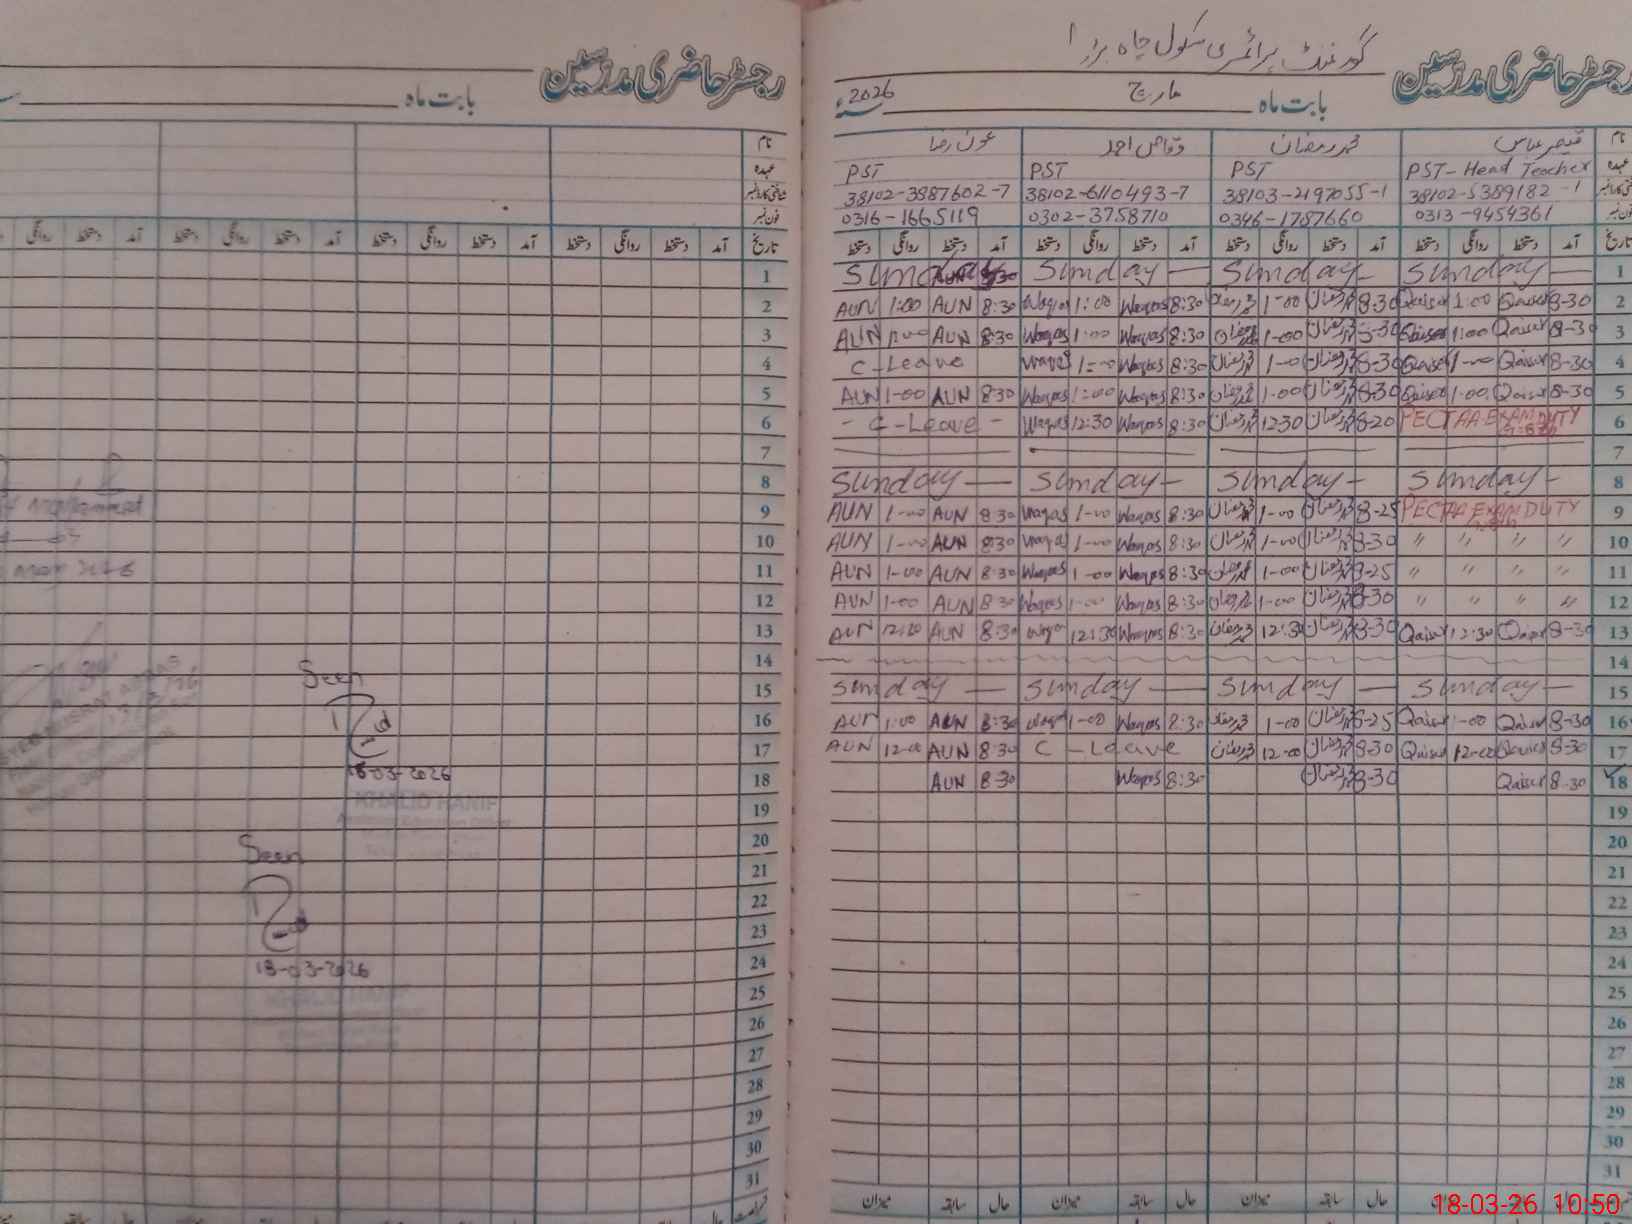 رجسٹر حاضری مدرسین
بابت ماہ
نام
عہدہ
شناختی کارڈ نمبر
فون نمبر
تاریخ آمد دستخط روانگی دستخط آمد دستخط روانگی دستخط آمد دستخط روانگی دستخط آمد دستخط روانگی
1
2
3
4
5
6
7
8
9
10
11
12
13
14
Seen
15
16
17
18-03-2026
18
KHALID HANIF
19
20
Seen
21
22
23
24
18-03-2026
25
26
27
28
29
30
31
حال سابقہ میزان
گورنمنٹ پرائمری سکول چاہ
رجسٹر حاضری مدرسین
بابت ماہ مارچ سنہء 2026
نام قیصر عباس محمد رمضان وقاص احمد عون رضا
عہدہ PST-Head Teacher PST PST PST
شناختی کارڈ نمبر 38102-5389182-1 38103-2197055-1 38102-6110493-7 38102-3987602-7
فون نمبر 0313-9454361 0346-1787660 0302-3758710 0316-1665119
تاریخ آمد دستخط روانگی دستخط آمد دستخط روانگی دستخط آمد دستخط روانگی دستخط آمد دستخط روانگی دستخط
Sunday Sunday — Sunday — Sunday — 1
AUN 1:00 AUN 8:30 Waqas 1:00 Waqas 8:30 محمد رمضان 1-00 محمد رمضان 8-30 Qaiser 1:00 Qaiser 8-30 2
AUN 1:00 AUN 8:30 Waqas 1:00 Waqas 8:30 محمد رمضان 1-00 محمد رمضان 8-30 Qaiser 1:00 Qaiser 8-30 3
C-Leave Waqas 1:00 Waqas 8:30 محمد رمضان 1-00 محمد رمضان 8-30 Qaiser 1-00 Qaiser 8-30 4
AUN 1-00 AUN 8:30 Waqas 1:00 Waqas 8:30 محمد رمضان 1-00 محمد رمضان 8-30 Qaiser 1-00 Qaiser 8-30 5
- C-Leave - Waqas 12:30 Waqas 8:30 محمد رمضان 12:30 محمد رمضان 8-20 PECTAA EXAM DUTY 6
7
Sunday — Sunday — Sunday — Sunday — 8
AUN 1-00 AUN 8:30 Waqas 1-00 Waqas 8:30 محمد رمضان 1-00 محمد رمضان 8-25 PECTAA EXAM DUTY 9
AUN 1-00 AUN 8:30 Waqas 1-00 Waqas 8:30 محمد رمضان 1-00 محمد رمضان 8-30 〃 〃 〃 〃 10
AUN 1-00 AUN 8:30 Waqas 1-00 Waqas 8:30 محمد رمضان 1-00 محمد رمضان 8-25 〃 〃 〃 〃 11
AUN 1-00 AUN 8:30 Waqas 1-00 Waqas 8:30 محمد رمضان 1-00 محمد رمضان 8-30 〃 〃 〃 〃 12
AUN 12:30 AUN 8:30 Waqas 12:30 Waqas 8:30 محمد رمضان 12:30 محمد رمضان 8-30 Qaiser 12:30 Qaiser 8-30 13
14
Sunday — Sunday — Sunday — Sunday — 15
AUN 1:00 AUN 8:30 Waqas 1-00 Waqas 8:30 محمد رمضان 1-00 محمد رمضان 8-25 Qaiser 1-00 Qaiser 8-30 16
AUN 12-00 AUN 8:30 C-Leave محمد رمضان 12-00 محمد رمضان 8-30 Qaiser 12-00 Qaiser 8-30 17
AUN 8:30 Waqas 8:30 محمد رمضان 8-30 Qaiser 8-30 18
19
20
21
22
23
24
25
26
27
28
29
30
31
حال سابقہ میزان حال سابقہ میزان
18-03-26 10:50